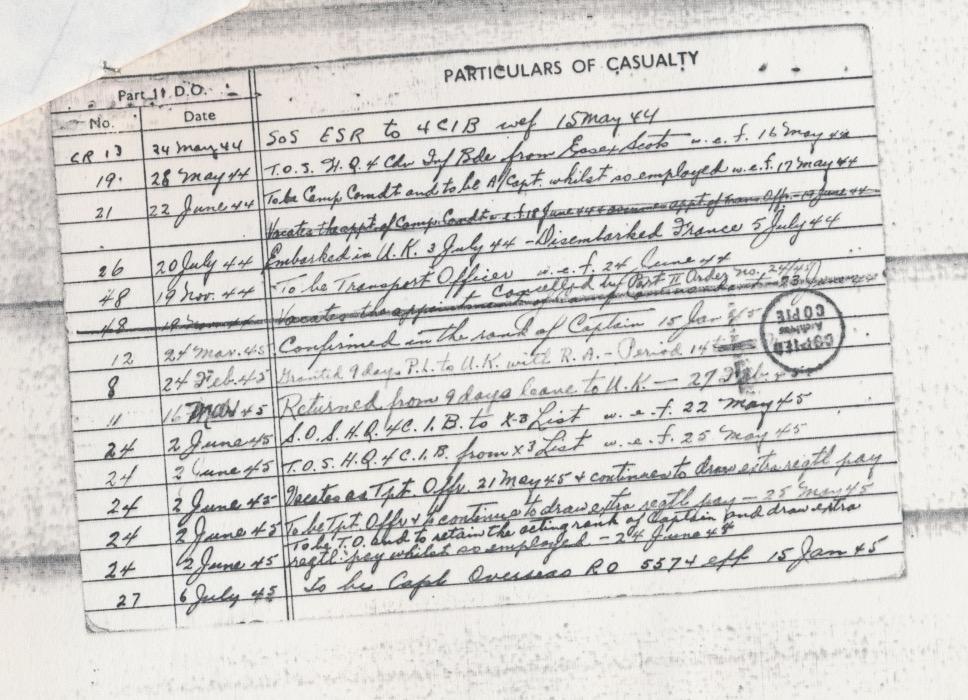 Part II D.O.
PARTICULARS OF CASUALTY
No. Date
CR 13 24 May 44 SOS ESR to 4 CIB wef 15 May 44
19. 28 May 44 T.O.S. H.Q. 4 Cdn Inf Bde from Essex Scots w.e.f. 16 May 44
21 22 June 44 To be Camp Comdt and to be A/Capt. whilst so employed w.e.f. 17 May 44
Vacates the appt. of Camp. Comdt w.e.f 18 June 44 & assumes appt of Trans. Offr. - 19 June 44
26 20 July 44 Embarked in U.K. 3 July 44 - Disembarked France 5 July 44
48 19 Nov. 44 To be Transport Officer w.e.f. 24 June 44
Cancelled by Part II Order no. 24/45
48 19 Nov 44 Vacates the appointment of 23 June 44
12 24 Mar. 45 Confirmed in the rank of Captain 15 Jan 45
8 24 Feb. 45 Granted 9 days P.L. to U.K. with R.A. - Period 14
11 16 Mar 45 Returned from 9 days leave to U.K - 27 Feb.
24 2 June 45 S.O.S. H.Q. 4 C.I.B. to X-3 List w.e.f. 22 May 45
24 2 June 45 T.O.S. H.Q. 4 C.I.B. from X3 List w.e.f. 25 May 45
24 2 June 45 Vacates as Tpt. Offr. 21 May 45 & continues to draw extra regtl pay
24 2 June 45 To be Tpt. Offr & to continue to draw extra regtl pay - 25 May 45
24 2 June 45 To be T.O. and to retain the acting rank of Captain and draw extra
regtl. pay whilst so employed - 24 June 44
27 6 July 45 To be Capt Overseas RO 5574 eff 15 Jan 45
COPIED
Archives
COPIE